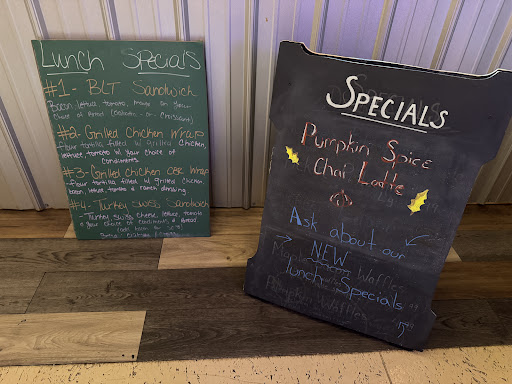 Lunch Specials
#1 - BLT Sandwich
Bacon, lettuce, tomato, mayo on your
choice of Bread
#2 - Grilled Chicken Wrap
Flour tortilla filled w/ grilled chicken,
lettuce tomato w/ your choice of
condiments
#3 - Grilled Chicken Wrap
Flour tortilla filled w/ grilled chicken,
bacon, lettuce, tomato & ranch dressing
#4 - Turkey Swiss Sandwich
- Turkey, Swiss cheese, lettuce, tomato
& your choice of condiments, & Bread
SPECIALS
Pumpkin Spice
Chai Latte
Ask about our
NEW
Maple Waffles
Lunch Specials
Pumpkin Waffles